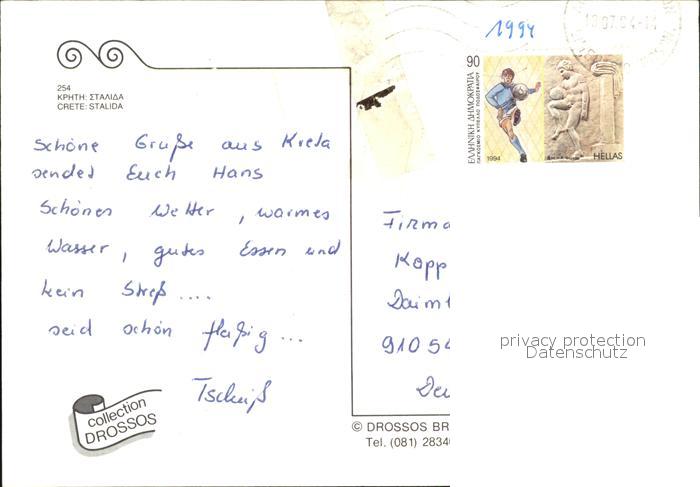 1994
18.07.94-14
90
ΕΛΛΗΝΙΚΗ ΔΗΜΟΚΡΑΤΙΑ
ΠΑΓΚΟΣΜΙΟ ΚΥΠΕΛΛΟ ΠΟΔΟΣΦΑΙΡΟΥ
1994
HELLAS
254
ΚΡΗΤΗ: ΣΤΑΛΙΔΑ
CRETE: STALIDA
Schöne Grüße aus Kreta
sendet Euch Hans
Schönes Wetter, warmes
Wasser, gutes Essen und
kein Streß ....
seid schön fleißig ...
Tschüß
Firma
Kopp
Daiml
91054
Deu
privacy protection
Datenschutz
collection
DROSSOS
© DROSSOS BR
Tel. (081) 2834